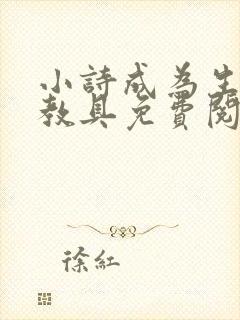 小詩成為生
教具免費閱
徐紅